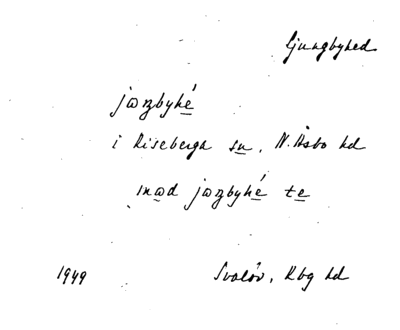 Ljungbyhed
jωŋbyhé
i Riseberga sn, N. Åsbo hd
inωd jωŋbyhé te
1949 Svalöv, Rbg hd